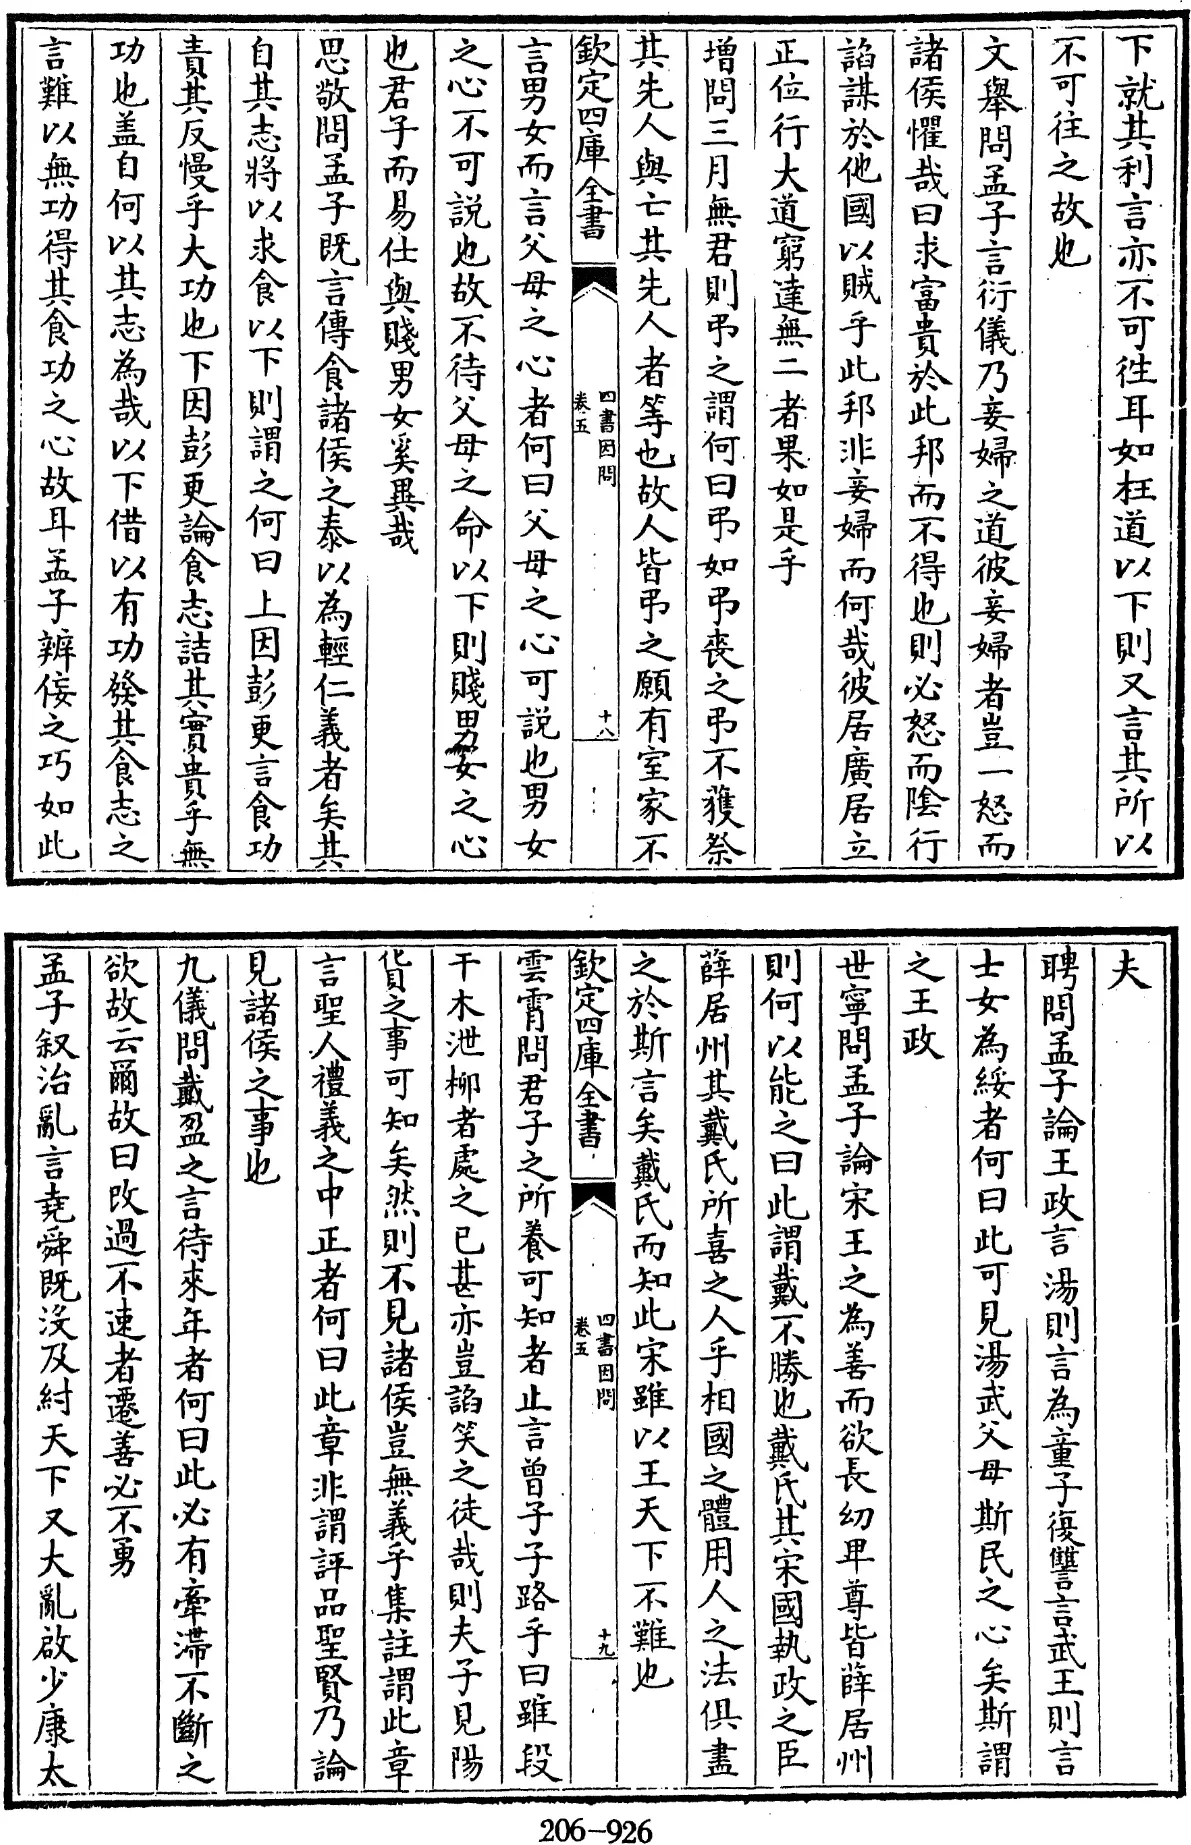 下就其利言亦不可徃耳如枉道以下則又言其所以
不可往之故也
文舉問孟子言衍儀乃妾婦之道彼妾婦者豈一怒而
諸侯懼哉曰求富貴於此邦而不得也則必怒而陰行
謟謀於他國以賊乎此邦非妾婦而何哉彼居廣居立
正位行大道窮達無二者果如是乎
增問三月無君則弔之謂何曰弔如弔喪之弔不獲祭
其先人與亡其先人者等也故人皆弔之願有室家不
欽定四庫全書
四書因問
卷五
十八
言男女而言父母之心者何曰父母之心可説也男女
之心不可説也故不待父母之命以下則賤男女之心
也君子而易仕與賤男女奚異哉
思敬問孟子既言傳食諸侯之泰以為輕仁義者矣其
自其志將以求食以下則謂之何曰上因彭更言食功
責其反慢乎大功也下因彭更論食志詰其實貴乎無
功也盖自何以其志為哉以下借以有功發其食志之
言難以無功得其食功之心故耳孟子辨侫之巧如此
夫
聘問孟子論王政言湯則言為童子復讐言武王則言
士女為綏者何曰此可見湯武父母斯民之心矣斯謂
之王政
世寧問孟子論宋王之為善而欲長幼卑尊皆薛居州
則何以能之曰此謂戴不勝也戴氏其宋國執政之臣
薛居州其戴氏所喜之人乎相國之體用人之法俱盡
之於斯言矣戴氏而知此宋雖以王天下不難也
欽定四庫全書
四書因問
卷五
十九
雲霄問君子之所養可知者止言曾子子路乎曰雖段
干木泄柳者處之已甚亦豈謟笑之徒哉則夫子見陽
貨之事可知矣然則不見諸侯豈無義乎集註謂此章
言聖人禮義之中正者何曰此章非謂評品聖賢乃論
見諸侯之事也
九儀問戴盈之言待來年者何曰此必有牽滯不斷之
欲故云爾故曰改過不速者遷善必不勇
孟子叙治亂言堯舜既没及紂天下又大亂啟少康太
206-926